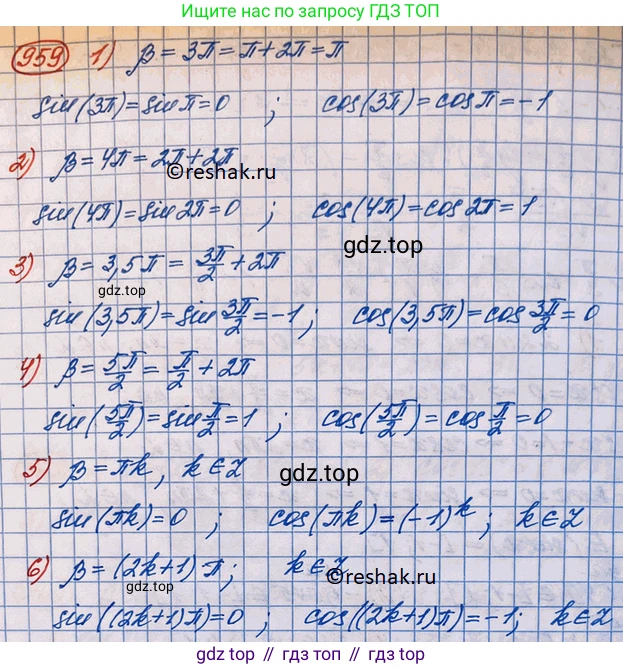 Ищите нас по запросу ГДЗ ТОП
959 1) β = 3π = π + 2π = π
sin(3π) = sin π = 0 ; cos(3π) = cos π = -1
2) β = 4π = 2π + 2π
©reshak.ru
sin(4π) = sin 2π = 0 ; cos(4π) = cos 2π = 1
gdz.top
3) β = 3,5π = 3π/2 + 2π
gdz.top
sin(3,5π) = sin 3π/2 = -1 ; cos(3,5π) = cos 3π/2 = 0
4) β = 5π/2 = π/2 + 2π
sin(5π/2) = sin π/2 = 1 ; cos(5π/2) = cos π/2 = 0
5) β = πk, k ∈ Z
gdz.top
sin(πk) = 0 ; cos(πk) = (-1)^k ; k ∈ Z
6) β = (2k+1)π ; k ∈ Z
©reshak.ru
gdz.top
sin((2k+1)π) = 0 ; cos((2k+1)π) = -1 ; k ∈ Z
gdz top // гдз топ // gdz.top